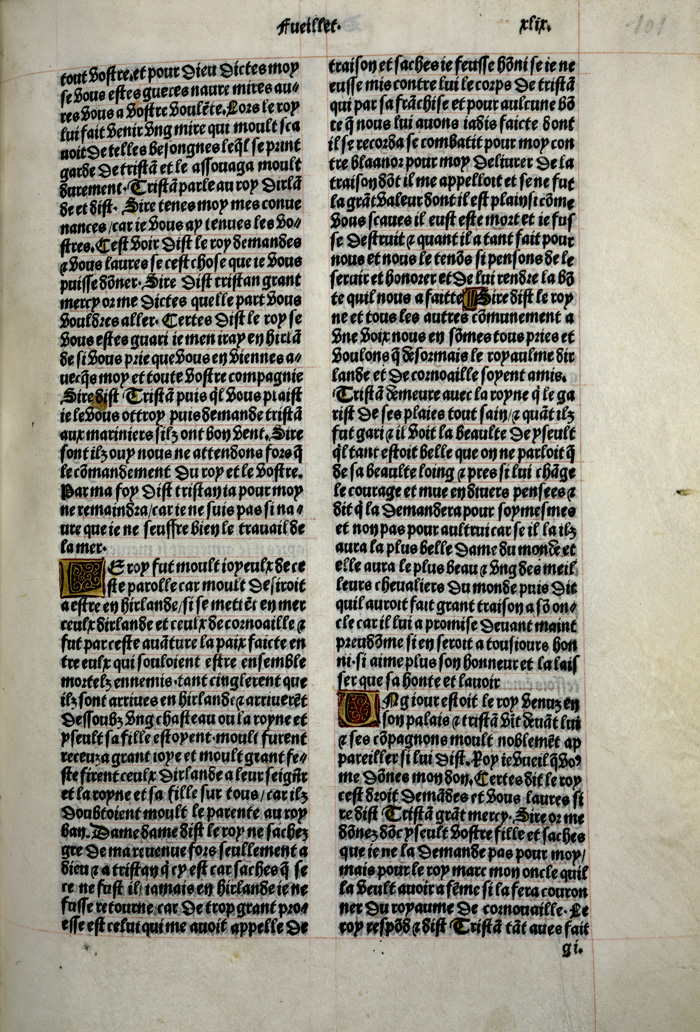 Fueillet. xlix.
101
tout vostre. et pour dieu dictes moy
se vous estes gueres naure mires au-
res vous a vostre voulēte. Lors le roy
lui fait venir vng mire qui moult sca
uoit de telles besongnes leq̄l se print
garde de tristā et le assouaga moult
durement. Tristā parle au roy dirlā
de et dist. Sire tenes moy mes conue
nances/car ie vous ay tenues les vo-
stres. Cest voir dist le roy demandes
⁊ vous laures se cest chose que ie vous
puisse dōner. Sire dist tristan grant
mercy or me dictes quelle part vous
vouldres aller. Certes dist le roy se
vous estes guari ie men iray en hirlā
de si vous prie que vous en viennes a-
uecq̄s moy et toute vostre compagnie
Sire dist Tristā puis q̄l vous plaist
ie le vous ottroy puis demande tristā
aux mariniers silz ont bon vent. Sire
font ilz ouy nous ne attendons fors q̄
le cōmandement du roy et le vostre.
Par ma foy dist tristan ia pour moy
ne remaindra/car ie ne suis pas si na-
ure que ie ne seuffre bien le trauail de
la mer.
LE roy fut moult ioyeulx de ce
ste parolle car moult desiroit
a estre en hirlande/si se metiēt en mer
ceulx dirlande et ceulx de cornoaille ⁊
fut par ceste auāture la paix faicte en
tre eulx qui souloient estre ensemble
mortelz ennemis. tant cinglerent que
ilz sont arriues en hirlande ⁊ arriuerēt
dessoubz vng chasteau ou la royne et
yseult sa fille estoyent. moult furent
receuz a grant ioye et moult grant fe-
ste firent ceulx dirlande a leur seignr̄
et la royne et sa fille sur tous/car ilz
doubtoient moult le parente au roy
ban. Dame dame dist le roy ne sachez
gre de ma reuenue fors seullement a
dieu ⁊ a tristan q̄ cy est car saches q̄ se
ce ne fust il/iamais en hirlande ie ne
fusse retourne/car de trop grant pro-
esse est celui qui me auoit appelle de
traison et saches ie feusse hōni se ie ne
eusse mis contre lui le corps de tristā
qui par sa frāchise et pour aulcune bō
te q̄ nous lui auons iadis faicte dont
il se recorda se combatit pour moy con
tre blaanor pour moy deliurer de la
traison dōt il me appelloit et se ne fut
la grāt valeur dont il est plain si cōme
vous scaues il eust este mort et ie fus
se destruit ⁊ quant il a tant fait pour
nous et nous le tenōs si pensons de le
seruir et honorer et de lui rendre la bō
te quil nous a faitte Sire dist le roy
ne et tous les autres cōmunement a
vne voix nous en sōmes tous pries et
voulons q̄ desormais le royaulme dir
lande et de cornoaille soyent amis.
Tristā demeure auec la royne q̄ le ga
rist de ses plaies tout sain/⁊ quāt ilz
fut gari ⁊ il voit la beaulte de yseult
q̄l tant estoit belle que on ne parloit q̄
de sa beaulte loing ⁊ pres si lui chāge
le courage et mue en diuers pensees ⁊
dit q̄ la demandera pour soy mesmes
et non pas pour aultrui car se il la ilz
aura la plus belle dame du monde et
elle aura le plus beau ⁊ vng des meil
leurs cheualiers du monde puis dit
quil auroit fait grant traison a sō on-
cle car il lui a promise deuant maint
preudōme si en seroit a tousiours hon
ni. si aime plus son honneur et la lais
ser que sa honte et lauoir
VNg iour estoit le roy venuz en
son palais ⁊ tristā vit deuāt lui
⁊ ses cōpagnons moult noblemēt ap
pareiller si lui dist. Roy ie vueil q̄ voꝰ
me dōnes mon don. Certes dit le roy
cest droit demādes et vous laures si
re dist Tristā grāt mercy. Sire or me
dōnez dōc yseult vostre fille et saches
que ie ne la demande pas pour moy/
mais pour le roy marc mon oncle quil
la veult auoir a fēme si la fera couron
ner du royaume de cornouaille. Le
roy respōd ⁊ dist Tristā tāt aues fait
gi.